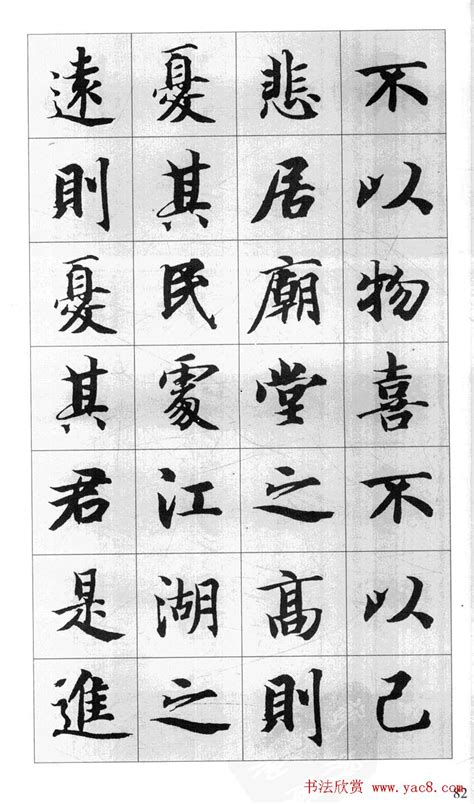 不以物喜不以己
悲居廟堂之高則
憂其民處江湖之
遠則憂其君是進
82
书法欣赏 www.yac8.com